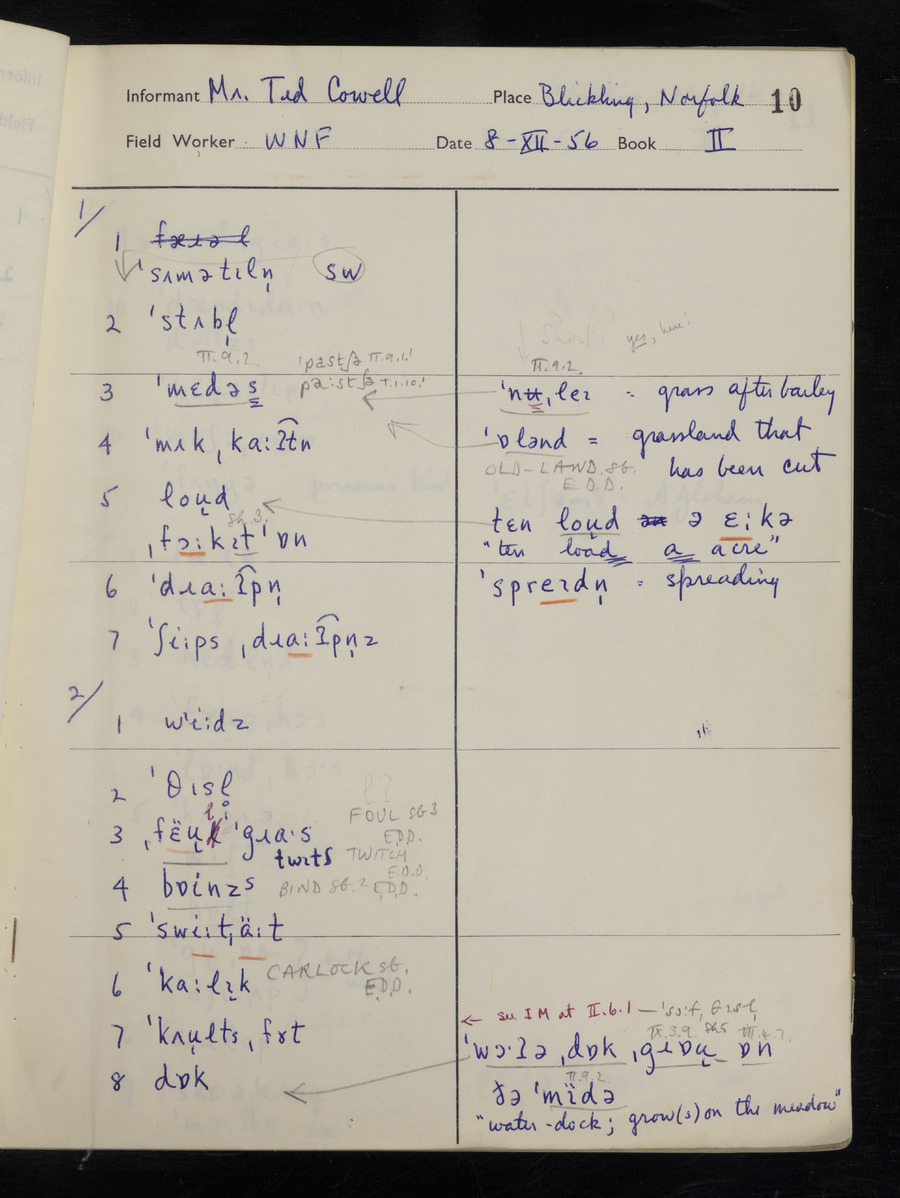 Informant Mr. Ted Cowell Place Blickling, Norfolk 10
Field Worker WNF Date 8-XII-56 Book II
1/
1 fæɪəl
ˈsʌmətɪln̩ SW
2 ˈstʌbl̩
II.9.2
ˈpastʃə II.9.1.
3 ˈmɛdəs pa:stʃə
4 ˈmʌk ˌka:ʔtn
5 loụd
ˌfɔ:kɪt ˈɒn
6 ˈdɹa:ʔpn̩
7 ˈʃi:ps ˌdɹa:ʔpn̩z
2/
1 wi:dz
2 ˈθɪsl̩
3 ˌfëụl ˈgɹa·s FOUL SB 3
E.D.D.
twɪtʃ TWITCH
E.D.D.
4 bɒinzs BIND SB.² E.D.D.
5 ˈswi:tˌä:t
6 ˈka:lɪk CARLOCK SB.
E.D.D.
7 ˈkʌụlts ˌfɤt
8 dɒk
Short? yes, here!
II.9.2.
ˈnʉˌleɪ = grass after barley
ˈɒlənd = grassland that
OLD-LAND. SB. has been cut
E.D.D.
tɛn loụd ə ɛ:kə
"ten load a acre"
ˈspreɪdn̩ = spreading
← see IM at II.6.1
IX.3.9. VIII.4.7.
ˈwɔ·ʔə ˌdɒk ˌgɹɒụ ɒn
II.9.2
ðə ˈmïdə
"water-dock; grow(s) on the meadow"